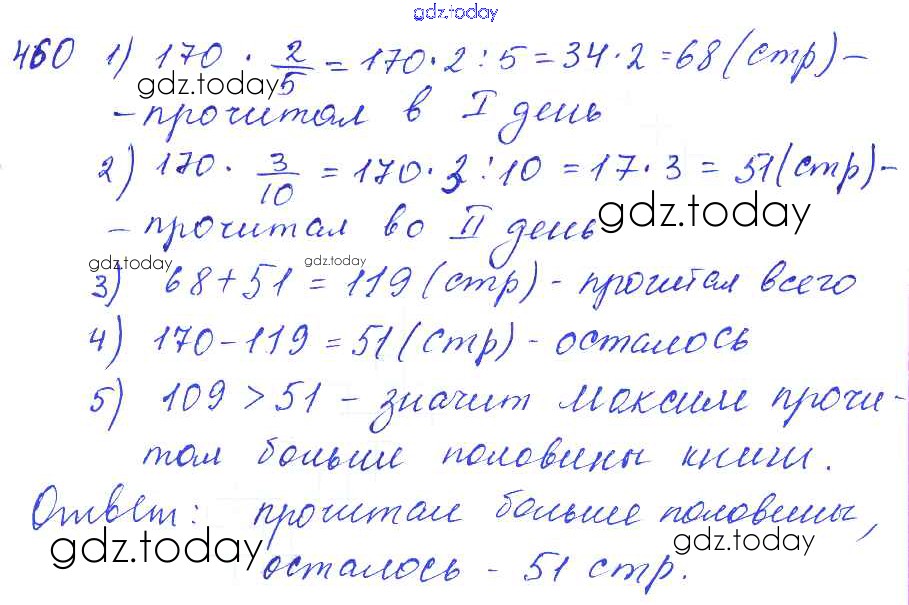 gdz.today
460 1) 170 · 2/5 = 170 · 2 : 5 = 34 · 2 = 68 (стр) –
gdz.today
– прочитал в I день
2) 170 · 3/10 = 170 · 3 : 10 = 17 · 3 = 51 (стр) –
– прочитал во II день
gdz.today
gdz.today gdz.today
3) 68 + 51 = 119 (стр) - прочитал всего
4) 170 – 119 = 51 (стр) - осталось
5) 109 > 51 – значит Максим прочи-
тал больше половины книги.
Ответ: прочитал больше половины,
gdz.today gdz.today
осталось - 51 стр.